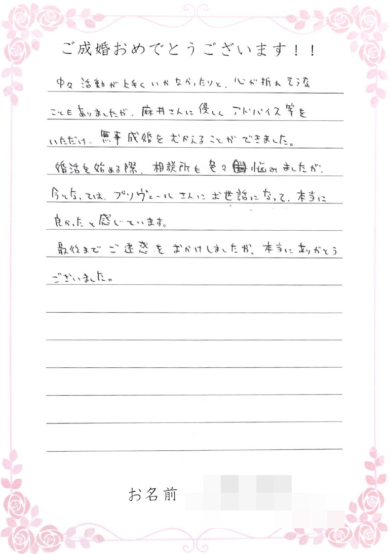 ご成婚おめでとうございます！！
中々活動が上手くいかなかったりと、心が折れそうな
こともありましたが、麻井さんに優しくアドバイス等を
いただけ、無事成婚をむかえることができました。
婚活を始める際、相談所も色々悩みましたが、
今となっては、プリヴェールさんにお世話になって、本当に
良かったと感じています。
最後までご迷惑をおかけしましたが、本当にありがとう
ございました。
お名前